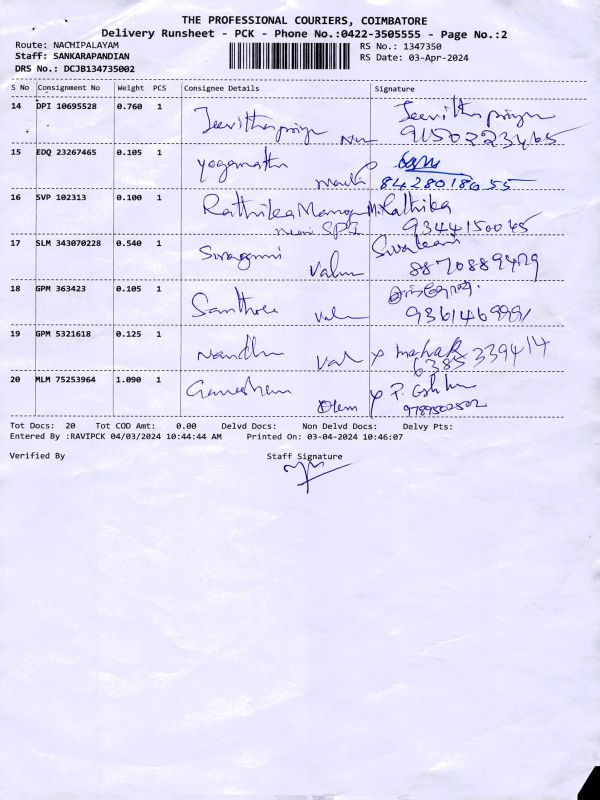 THE PROFESSIONAL COURIERS, COIMBATORE
Delivery Runsheet - PCK - Phone No.:0422-3505555 - Page No.:2
Route: NACHIPALAYAM RS No.: 1347350
Staff: SANKARAPANDIAN RS Date: 03-Apr-2024
DRS No.: DCJB134735002
S No Consignment No Weight PCS Consignee Details Signature
14 DPI 10695528 0.760 1 Jeevithapriya Jeevithapriya
9150223465
15 EDQ 23267465 0.105 1 yogamathi
8428018655
16 SVP 102313 0.100 1 Rathika M. Rathika
near 9344150065
17 SLM 343070228 0.540 1
8870889479
18 GPM 363423 0.105 1
19 GPM 5321618 0.125 1 Nandhu
6385339414
20 MLM 75253964 1.090 1
9789502502
Tot Docs: 20 Tot COD Amt: 0.00 Delvd Docs: Non Delvd Docs: Delvy Pts:
Entered By :RAVIPCK 04/03/2024 10:44:44 AM Printed On: 03-04-2024 10:46:07
Verified By Staff Signature